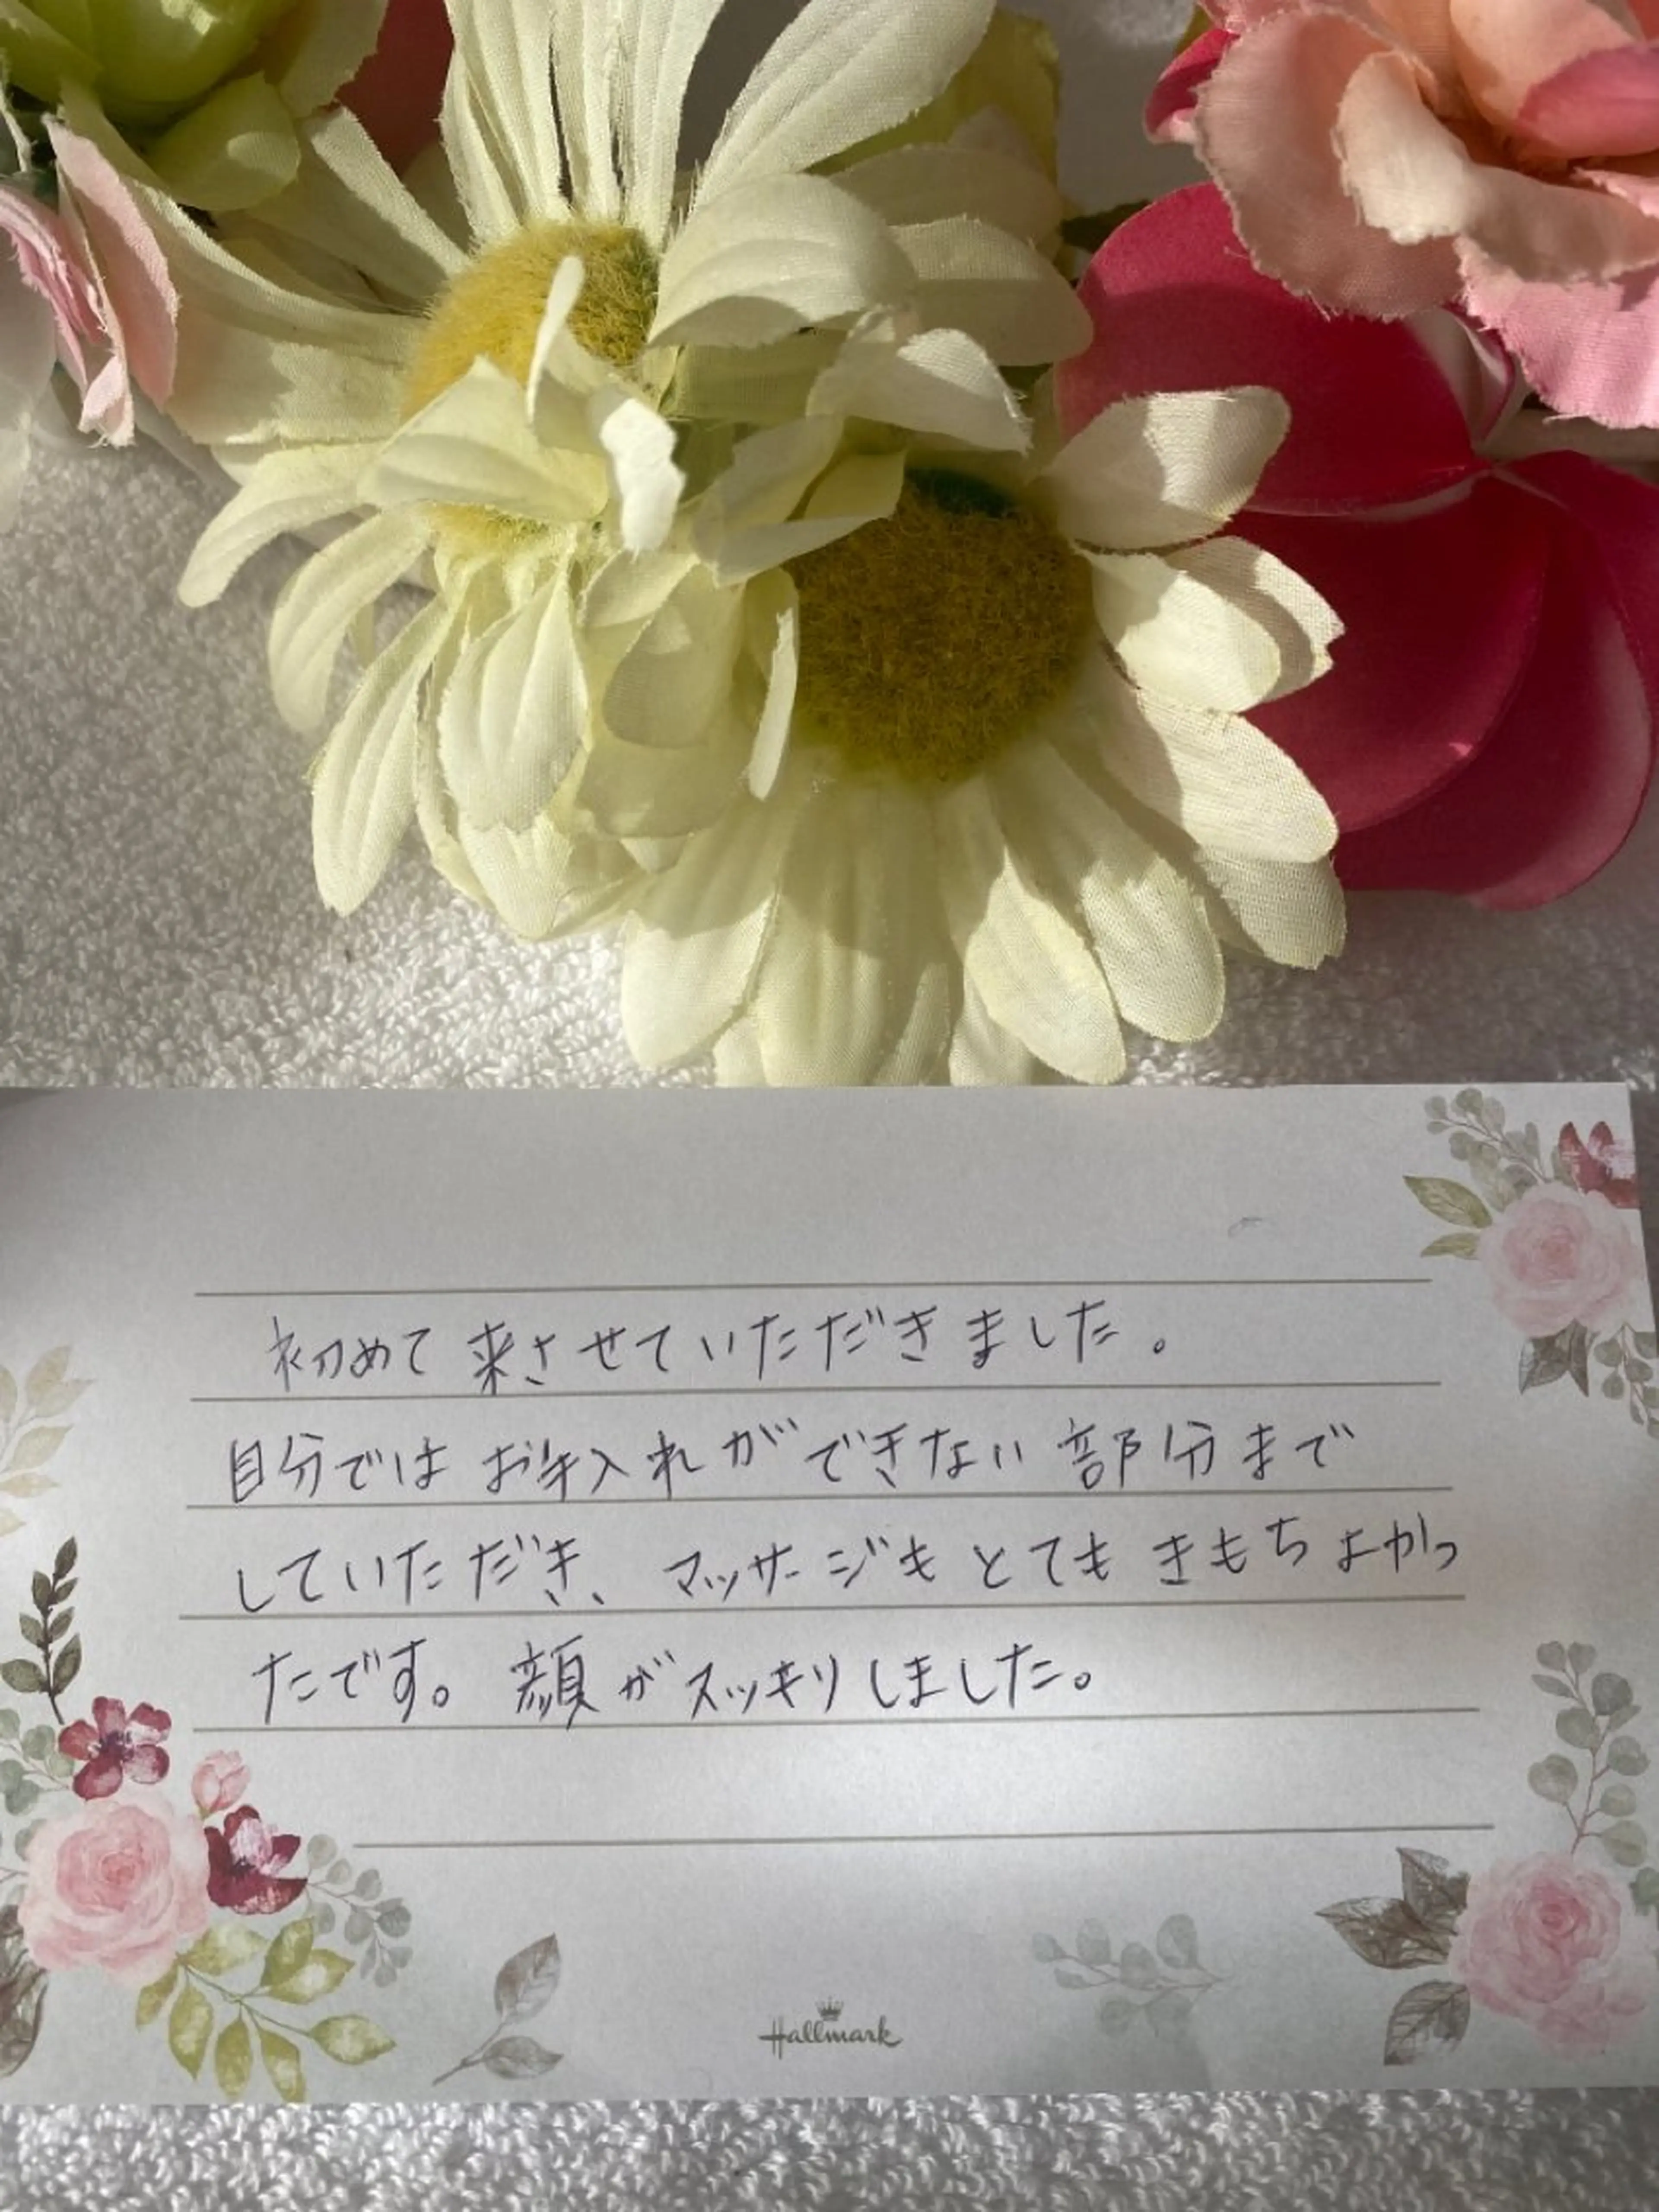 初めて来させていただきました。
自分ではお手入れができない部分まで
していただき、マッサージもとてもきもちよかっ
たです。顔がスッキリしました。
Hallmark